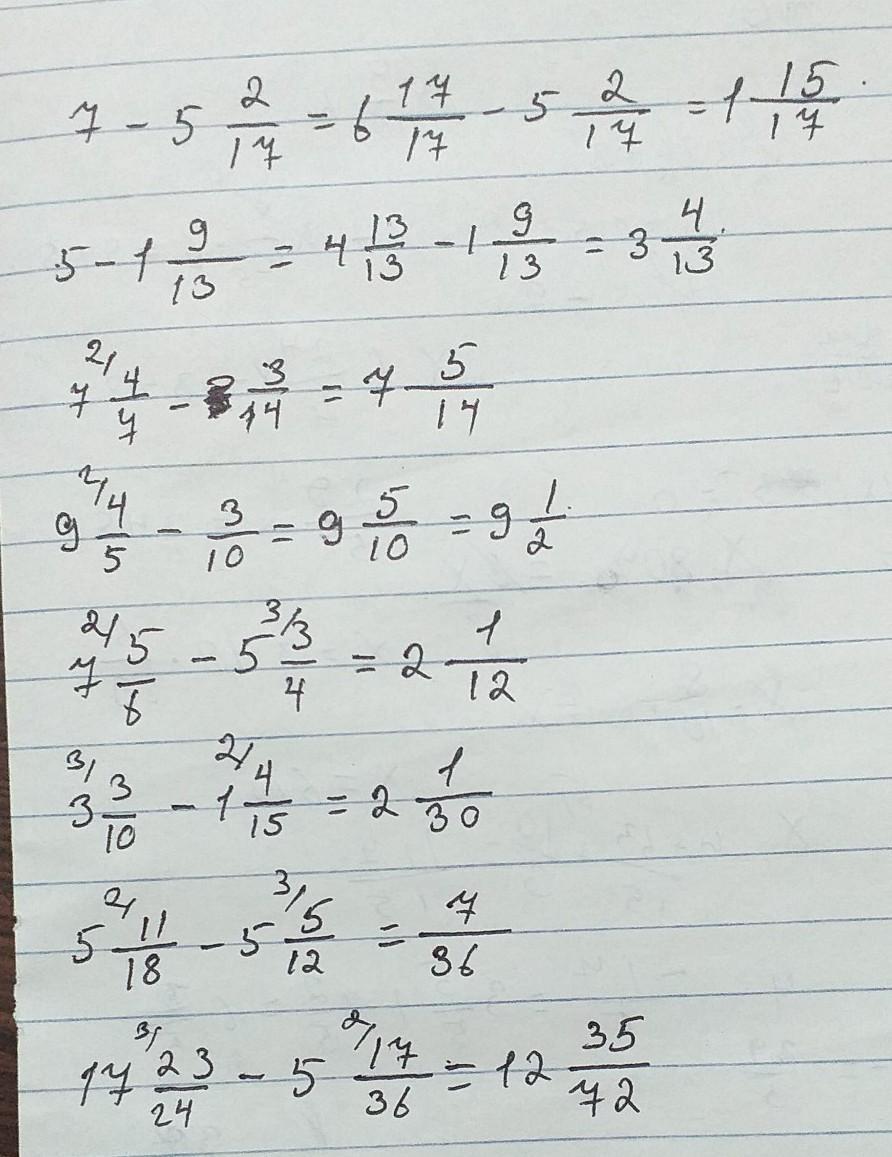 7 - 5 2/17 = 6 17/17 - 5 2/17 = 1 15/17.
5 - 1 9/13 = 4 13/13 - 1 9/13 = 3 4/13.
7 2/ 4/7 - 3/14 = 7 5/14
9 2/ 4/5 - 3/10 = 9 5/10 = 9 1/2.
7 2/ 5/6 - 5 3/ 3/4 = 2 1/12
3 3/ 3/10 - 1 2/ 4/15 = 2 1/30
5 2/ 11/18 - 5 3/ 5/12 = 7/36
17 3/ 23/24 - 5 2/ 17/36 = 12 35/72